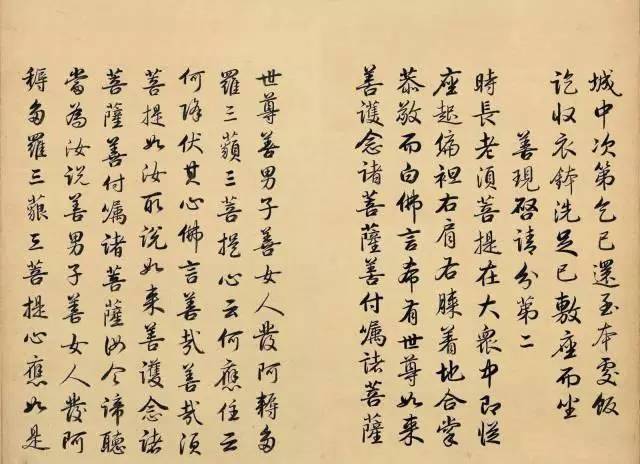 城中次第乞已還至本處飯
訖收衣鉢洗足已敷座而坐
善現啓請分第二
時長老須菩提在大衆中即從
座起偏袒右肩右膝着地合掌
恭敬而白佛言希有世尊如来
善護念諸菩薩善付囑諸菩薩
世尊善男子善女人發阿耨多
羅三藐三菩提心云何應住云
何降伏其心佛言善哉善哉須
菩提如汝所說如来善護念諸
菩薩善付囑諸菩薩汝今諦聽
當為汝說善男子善女人發阿
耨多羅三藐三菩提心應如是